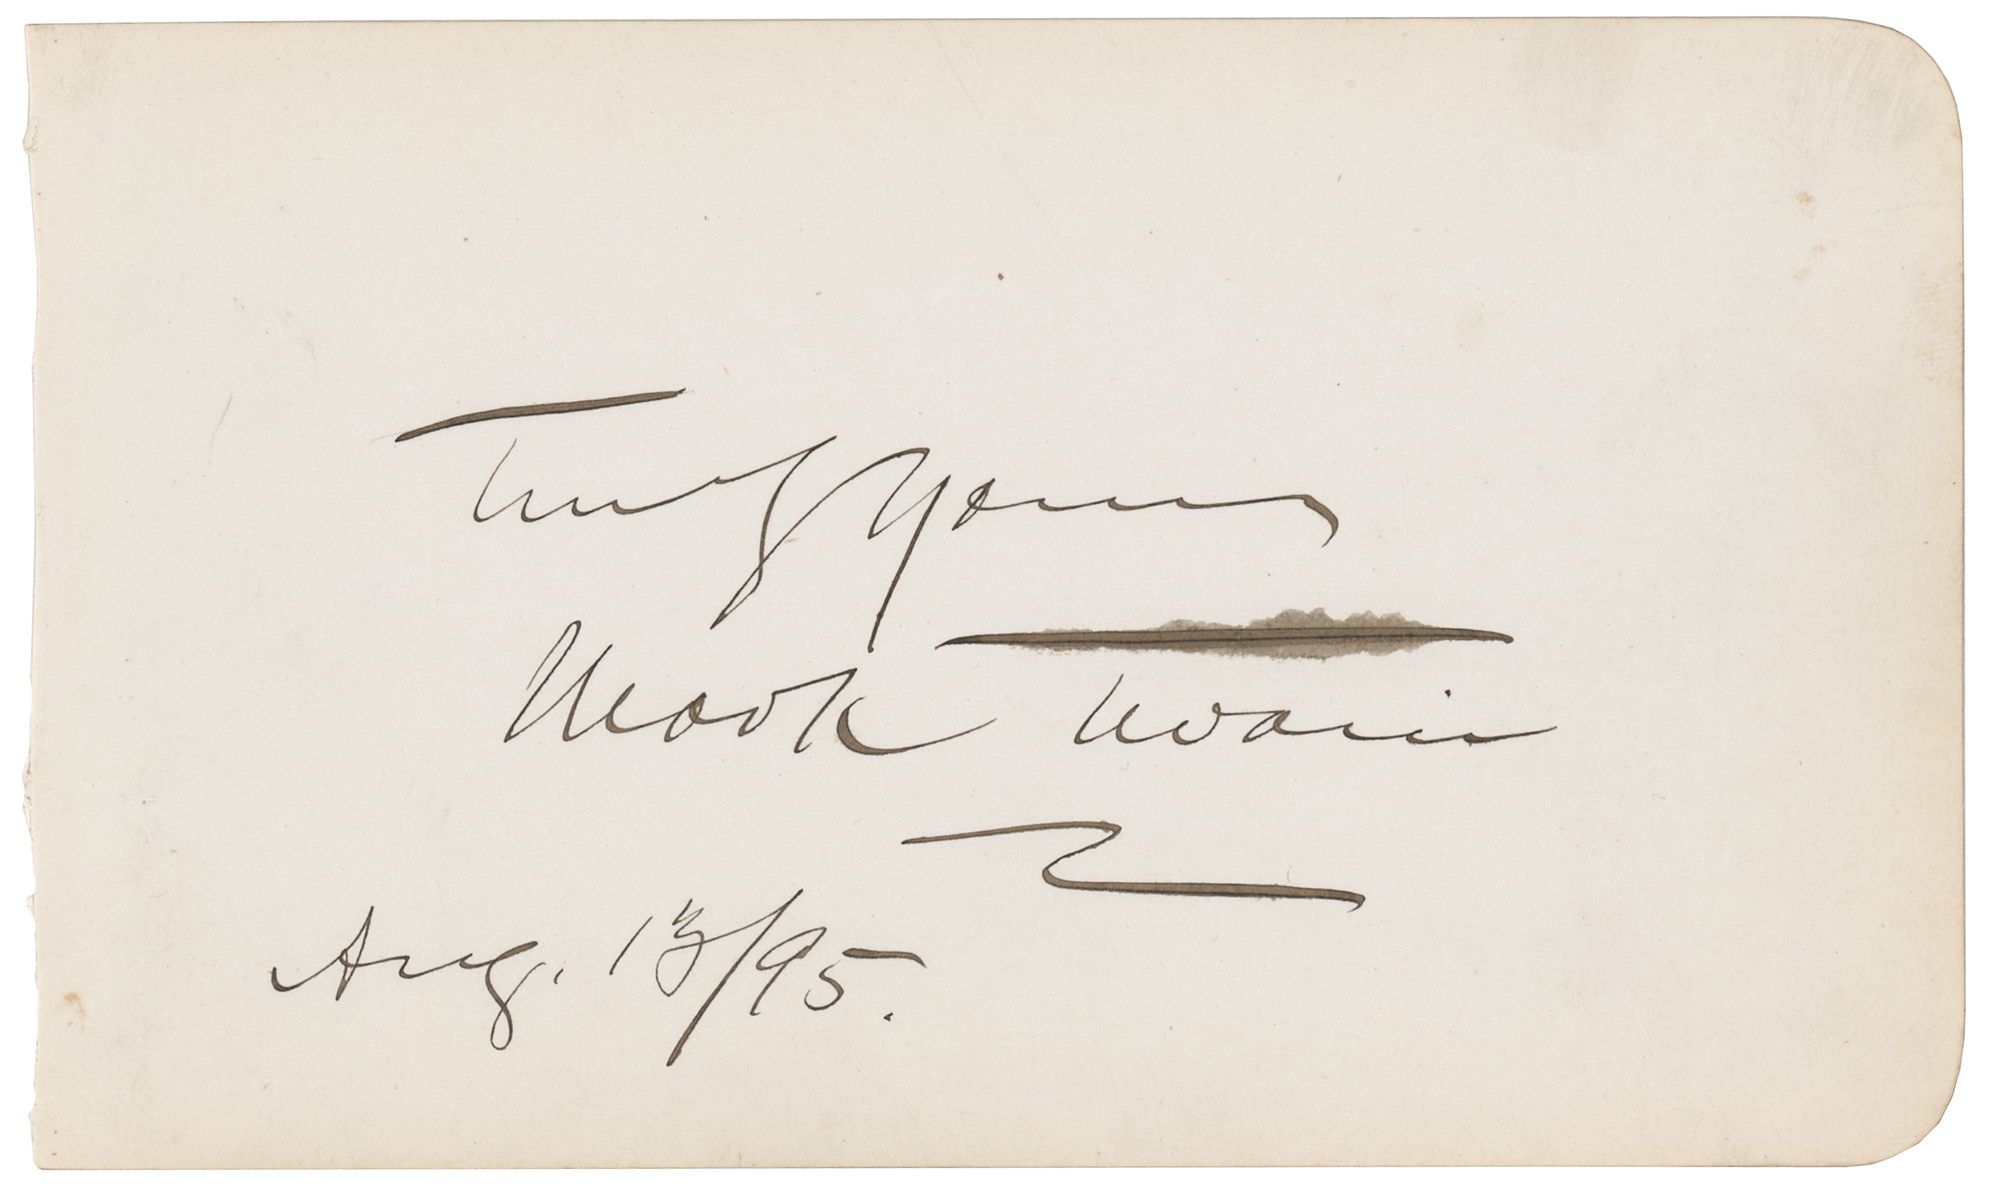 Truly Yours
Mark Twain
Aug. 13/95.